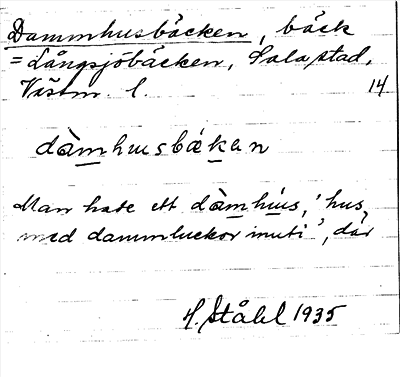 Dammhusbäcken, bäck
= Långsjöbäcken, Sala stad,
Västm. l. 14
dàmhusbäkan
Man hade ett dàmhus, 'hus
med dammluckor inuti', där
H. Ståhl 1935